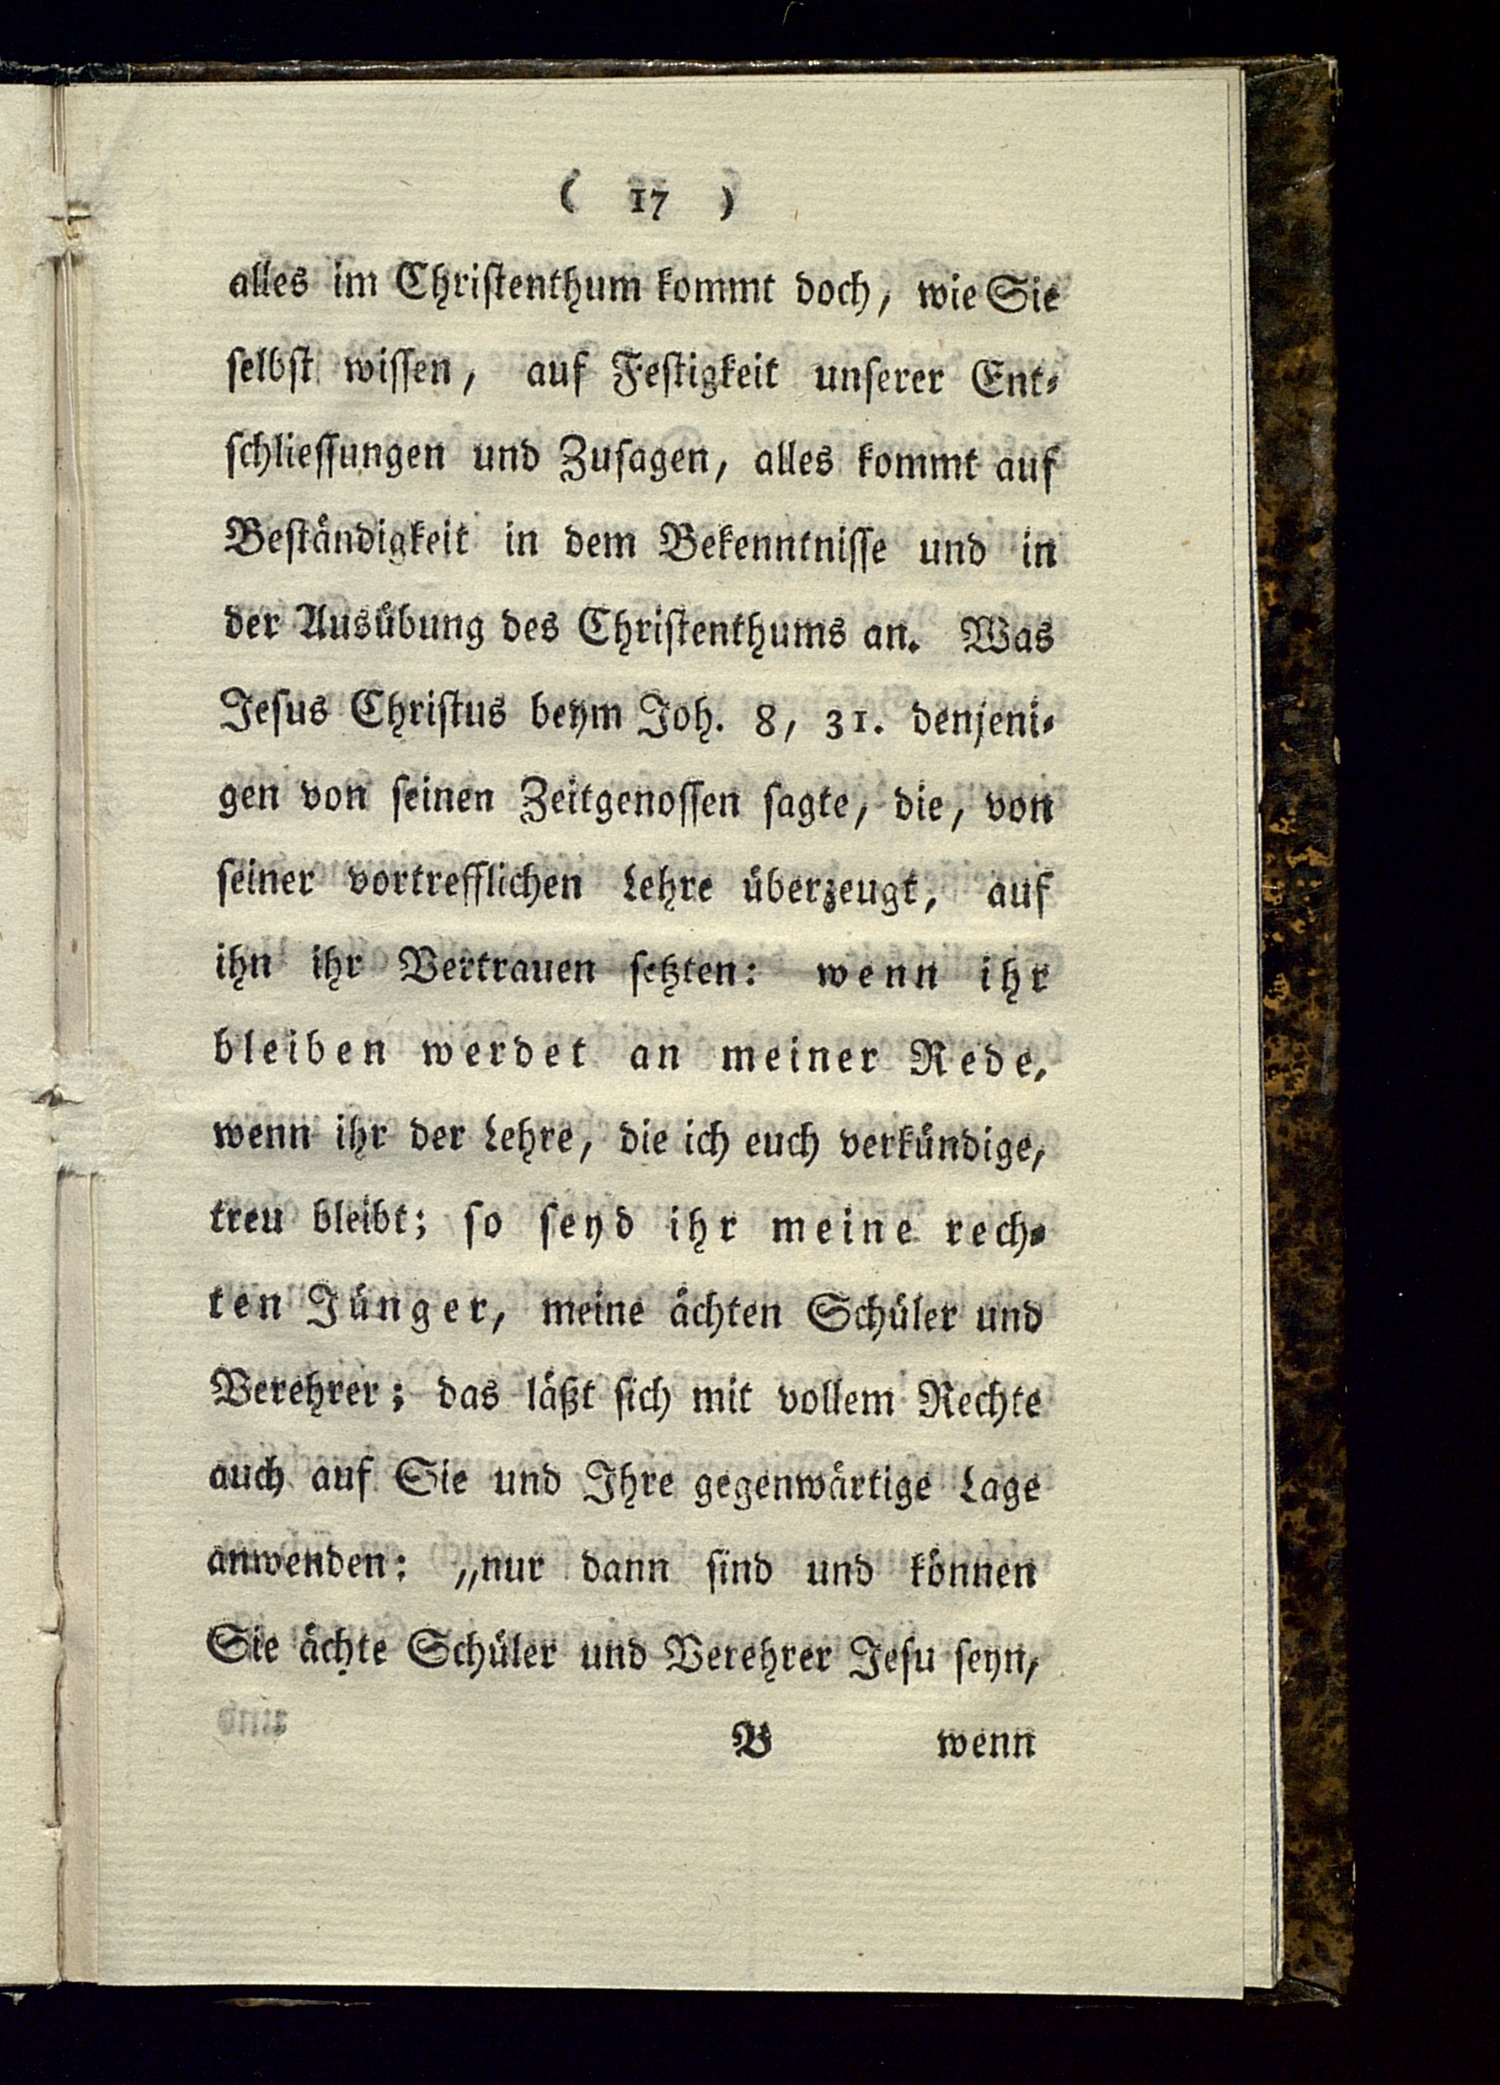 ( 17 )
alles im Christenthum kommt doch, wie Sie
selbst wissen, auf Festigkeit unserer Ent-
schliessungen und Zusagen, alles kommt auf
Beständigkeit in dem Bekenntnisse und in
der Ausübung des Christenthums an. Was
Jesus Christus beym Joh. 8, 31. denjeni-
gen von seinen Zeitgenossen sagte, die, von
seiner vortrefflichen Lehre überzeugt, auf
ihn ihr Vertrauen setzten: wenn ihr
bleiben werdet an meiner Rede,
wenn ihr der Lehre, die ich euch verkündige,
treu bleibt; so seyd ihr meine rech-
ten Jünger, meine ächten Schüler und
Verehrer; das läßt sich mit vollem Rechte
auch auf Sie und Ihre gegenwärtige Lage
anwenden: „nur dann sind und können
Sie ächte Schüler und Verehrer Jesu seyn,
B wenn